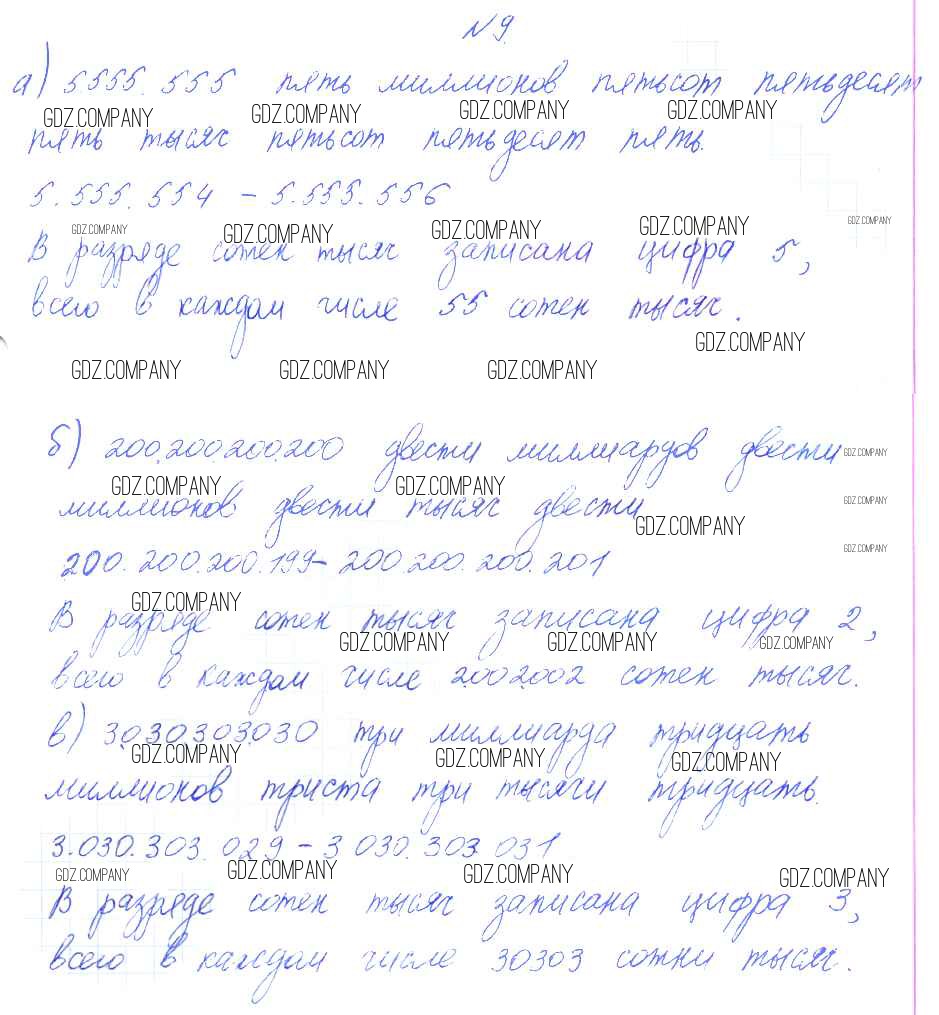 №9.
а) 5555.555 пять миллионов пятьсот пятьдесят
GDZ.COMPANY GDZ.COMPANY GDZ.COMPANY GDZ.COMPANY
пять тысяч пятьсот пятьдесят пять.
5.555.554 – 5.555.556
GDZ.COMPANY GDZ.COMPANY GDZ.COMPANY GDZ.COMPANY GDZ.COMPANY
В разряде сотен тысяч записана цифра 5,
всего в каждом числе 55 сотен тысяч.
GDZ.COMPANY
GDZ.COMPANY GDZ.COMPANY GDZ.COMPANY
б) 200.200.200.200 двести миллиардов двести
GDZ.COMPANY
GDZ.COMPANY GDZ.COMPANY GDZ.COMPANY
миллионов двести тысяч двести
GDZ.COMPANY
200.200.200.199 – 200.200.200.201
GDZ.COMPANY
GDZ.COMPANY
В разряде сотен тысяч записана цифра 2,
GDZ.COMPANY GDZ.COMPANY GDZ.COMPANY
всего в каждом числе 2002002 сотен тысяч.
в) 3.030.303.030 три миллиарда тридцать
GDZ.COMPANY GDZ.COMPANY GDZ.COMPANY
миллионов триста три тысячи тридцать.
3.030.303.029 – 3 030.303.031
GDZ.COMPANY GDZ.COMPANY GDZ.COMPANY GDZ.COMPANY
В разряде сотен тысяч записана цифра 3,
всего в каждом числе 30303 сотни тысяч.